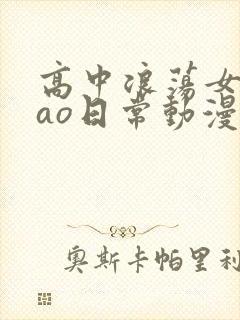 高中浪荡女
ao日常動漫
奧斯卡帕里利